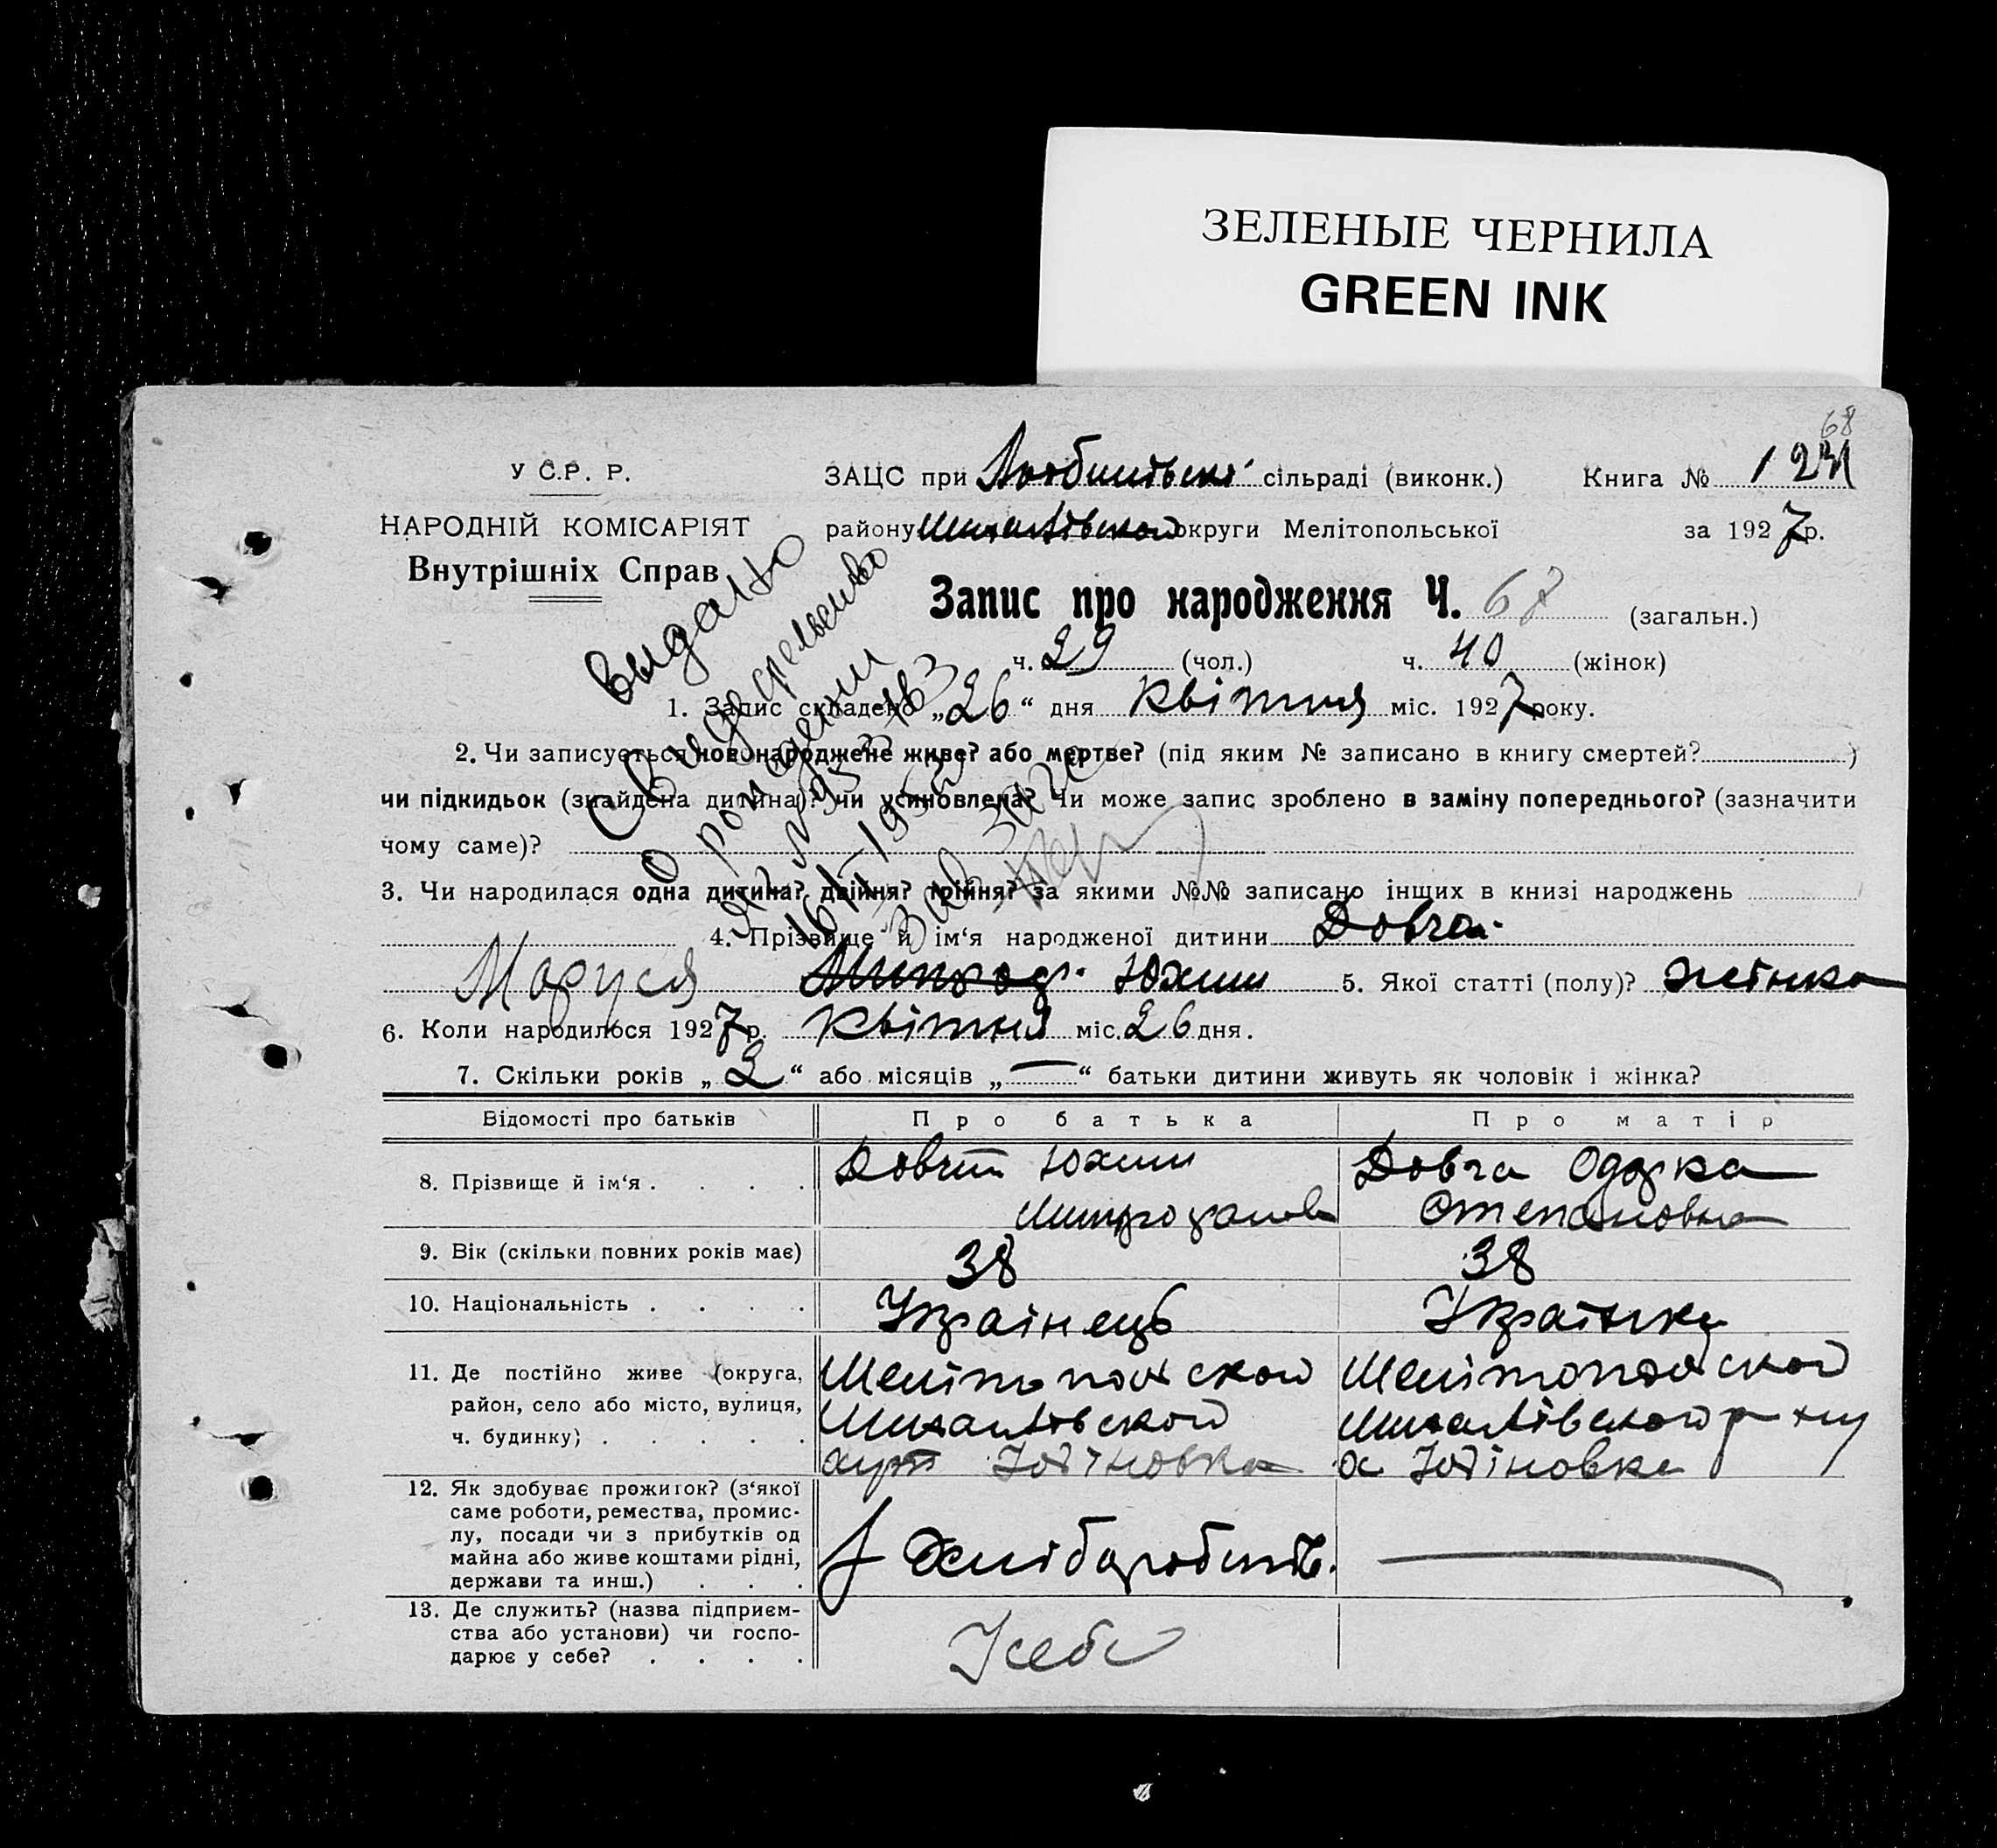 ЗЕЛЕНЫЕ ЧЕРНИЛА
GREEN INK
68
У С.Р. Р. ЗАЦС при сільраді (виконк.) Книга №
НАРОДНІЙ КОМІСАРІЯТ району округи Мелітопольської за 1927 р.
Внутрішніх Справ
Запис про народження Ч. 67 (загальн.)
ч. 29 (чол.) ч. 40 (жінок)
1. Запис складено „26“ дня Квітня міс. 1927 року.
2. Чи записується новонароджене живе? або мертве? (під яким № записано в книгу смертей? )
чи підкидьок (знайдена дитина)? чи усиновлена? Чи може запис зроблено в заміну попереднього? (зазначити
чому саме)?
3. Чи народилася одна дитина? двійня? трійня? за якими №№ записано інших в книзі народжень
4. Прізвище й ім‘я народженої дитини Довга
Маруся Юхим 5. Якої статті (полу)? жетнка
6. Коли народилося 1927 р. Квітня міс. 26 дня.
7. Скільки років „2“ або місяців „—“ батьки дитини живуть як чоловік і жінка?
Выдано
Свидетельство
о рождении
Відомості про батьків Про батька Про матір
8. Прізвище й ім‘я . . . . Юхим Довга Одарка
Степановна
9. Вік (скільки повних років має) 38 38
10. Національність . . . . Украінець Украінка
11. Де постійно живе (округа,
район, село або місто, вулиця,
ч. будинку) . . . . .
хут Юдіновка х Юдіновка
12. Як здобуває прожиток? (з‘якої
саме роботи, ремества, промис-
лу, посади чи з прибутків од
майна або живе коштами рідні,
держави та инш.) . . . Хлібаробить.
13. Де служить? (назва підприєм-
ства або установи) чи госпо-
дарює у себе? . . . . Усебе